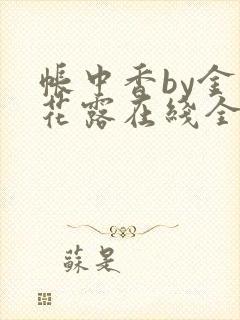 帐中香by金
花露在线全
蘇是